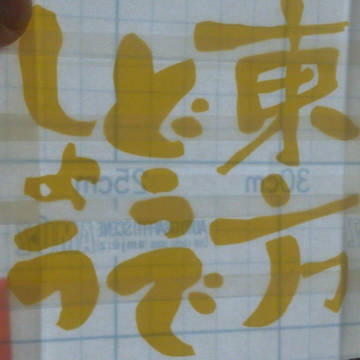 東方
どうで
しょう
30cm
25cm